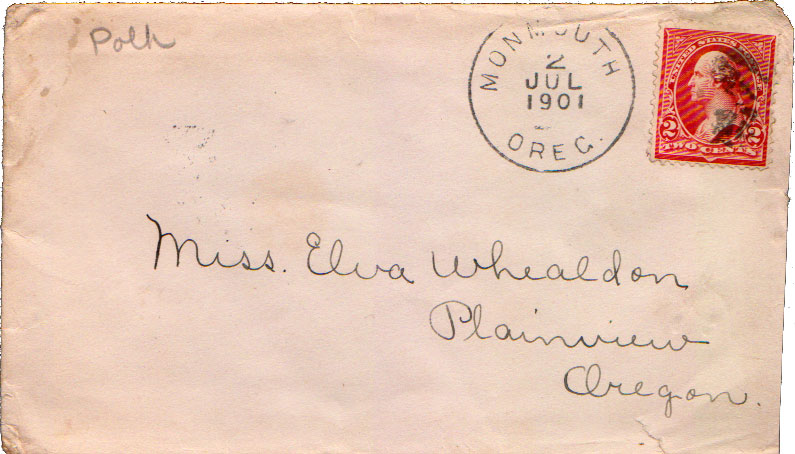 Polk
MONMOUTH
2
JUL
1901
OREG.
UNITED STATES POSTAGE
2 2
TWO CENTS
Miss. Elva Whealdon
Plainview
Oregon.